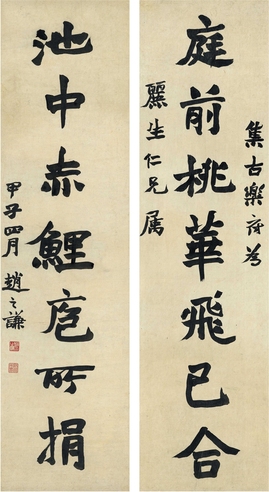 集古樂府為
麗生仁兄属
庭前桃華飛已合
池中赤鯉庖所捐
甲子四月趙之謙